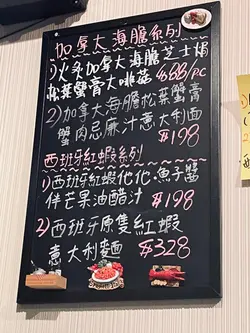 加拿大海膽系列
1)火炙加拿大海膽芝士焗
松葉蟹膏大啡菇 $688/PC
2)加拿大海膽松葉蟹膏
蟹肉忌廉汁意大利面
$198
西班牙紅蝦系列
1)西班牙紅蝦他他,魚子醬
伴芒果油醋汁 $198
2)西班牙原隻紅蝦
意大利麵 $328